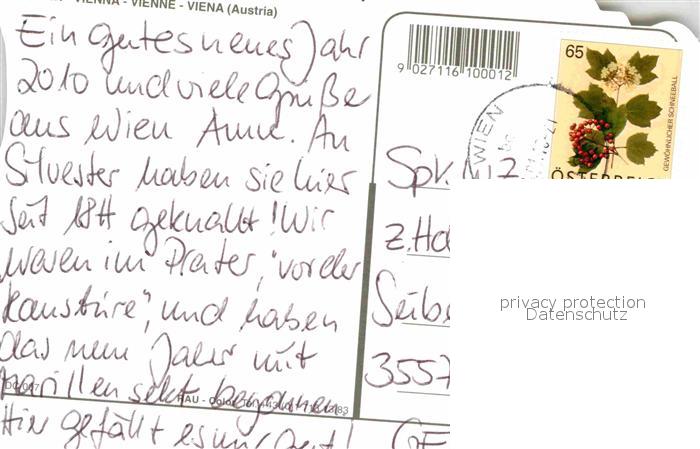 VIENNA - VIENNE - VIENA (Austria)
Ein gutes neues Jahr
2010 und viele Grüße
aus Wien Anne. An
Silvester haben sie hier
seit 18H geknallt! Wir
waren im Prater, "vor der
Haustüre", und haben
das neue Jahr mit
Marillensekt begonnen
Hier gefällt es mir gut!
9 027116 100012
WIEN
65
GEWÖHNLICHER SCHNEEBALL
ÖSTERREICH
Spv.
z.Hd
Seibe
3557
GE
privacy protection
Datenschutz